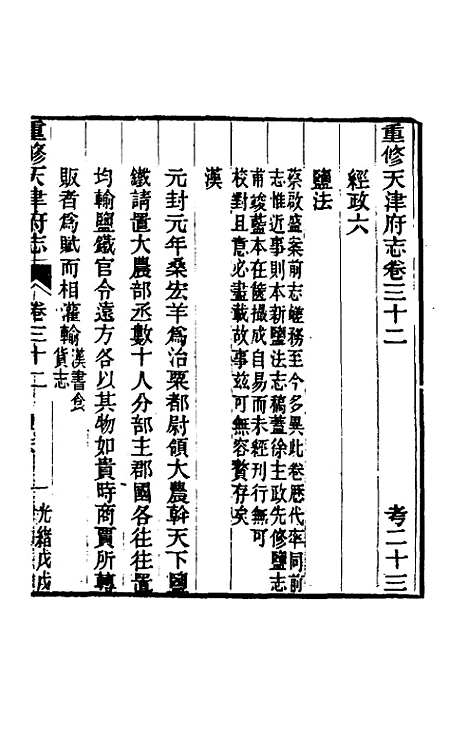 重修天津府志卷三十二　考二十三
經政六
鹽法
蔡啟盛案前志鹺務至今多異此卷歷代率同前
志惟近事則本新鹽法志稿蓋徐主政先修鹽志
甫竣藍本在篋撮成自易而未經刊行無可
校對且意必盡載故事茲可無容贅存矣
漢
元封元年桑宏羊爲治粟都尉領大農幹天下鹽
鐵請置大農部丞數十人分部主郡國各往往置
均輸鹽鐵官令遠方各以其物如貴時商賈所轉
販者爲賦而相灌輸漢書食
貨志
重修天津府志　卷三十二　一　光緒戊戌